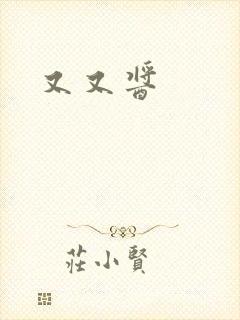 又又醬
莊小賢